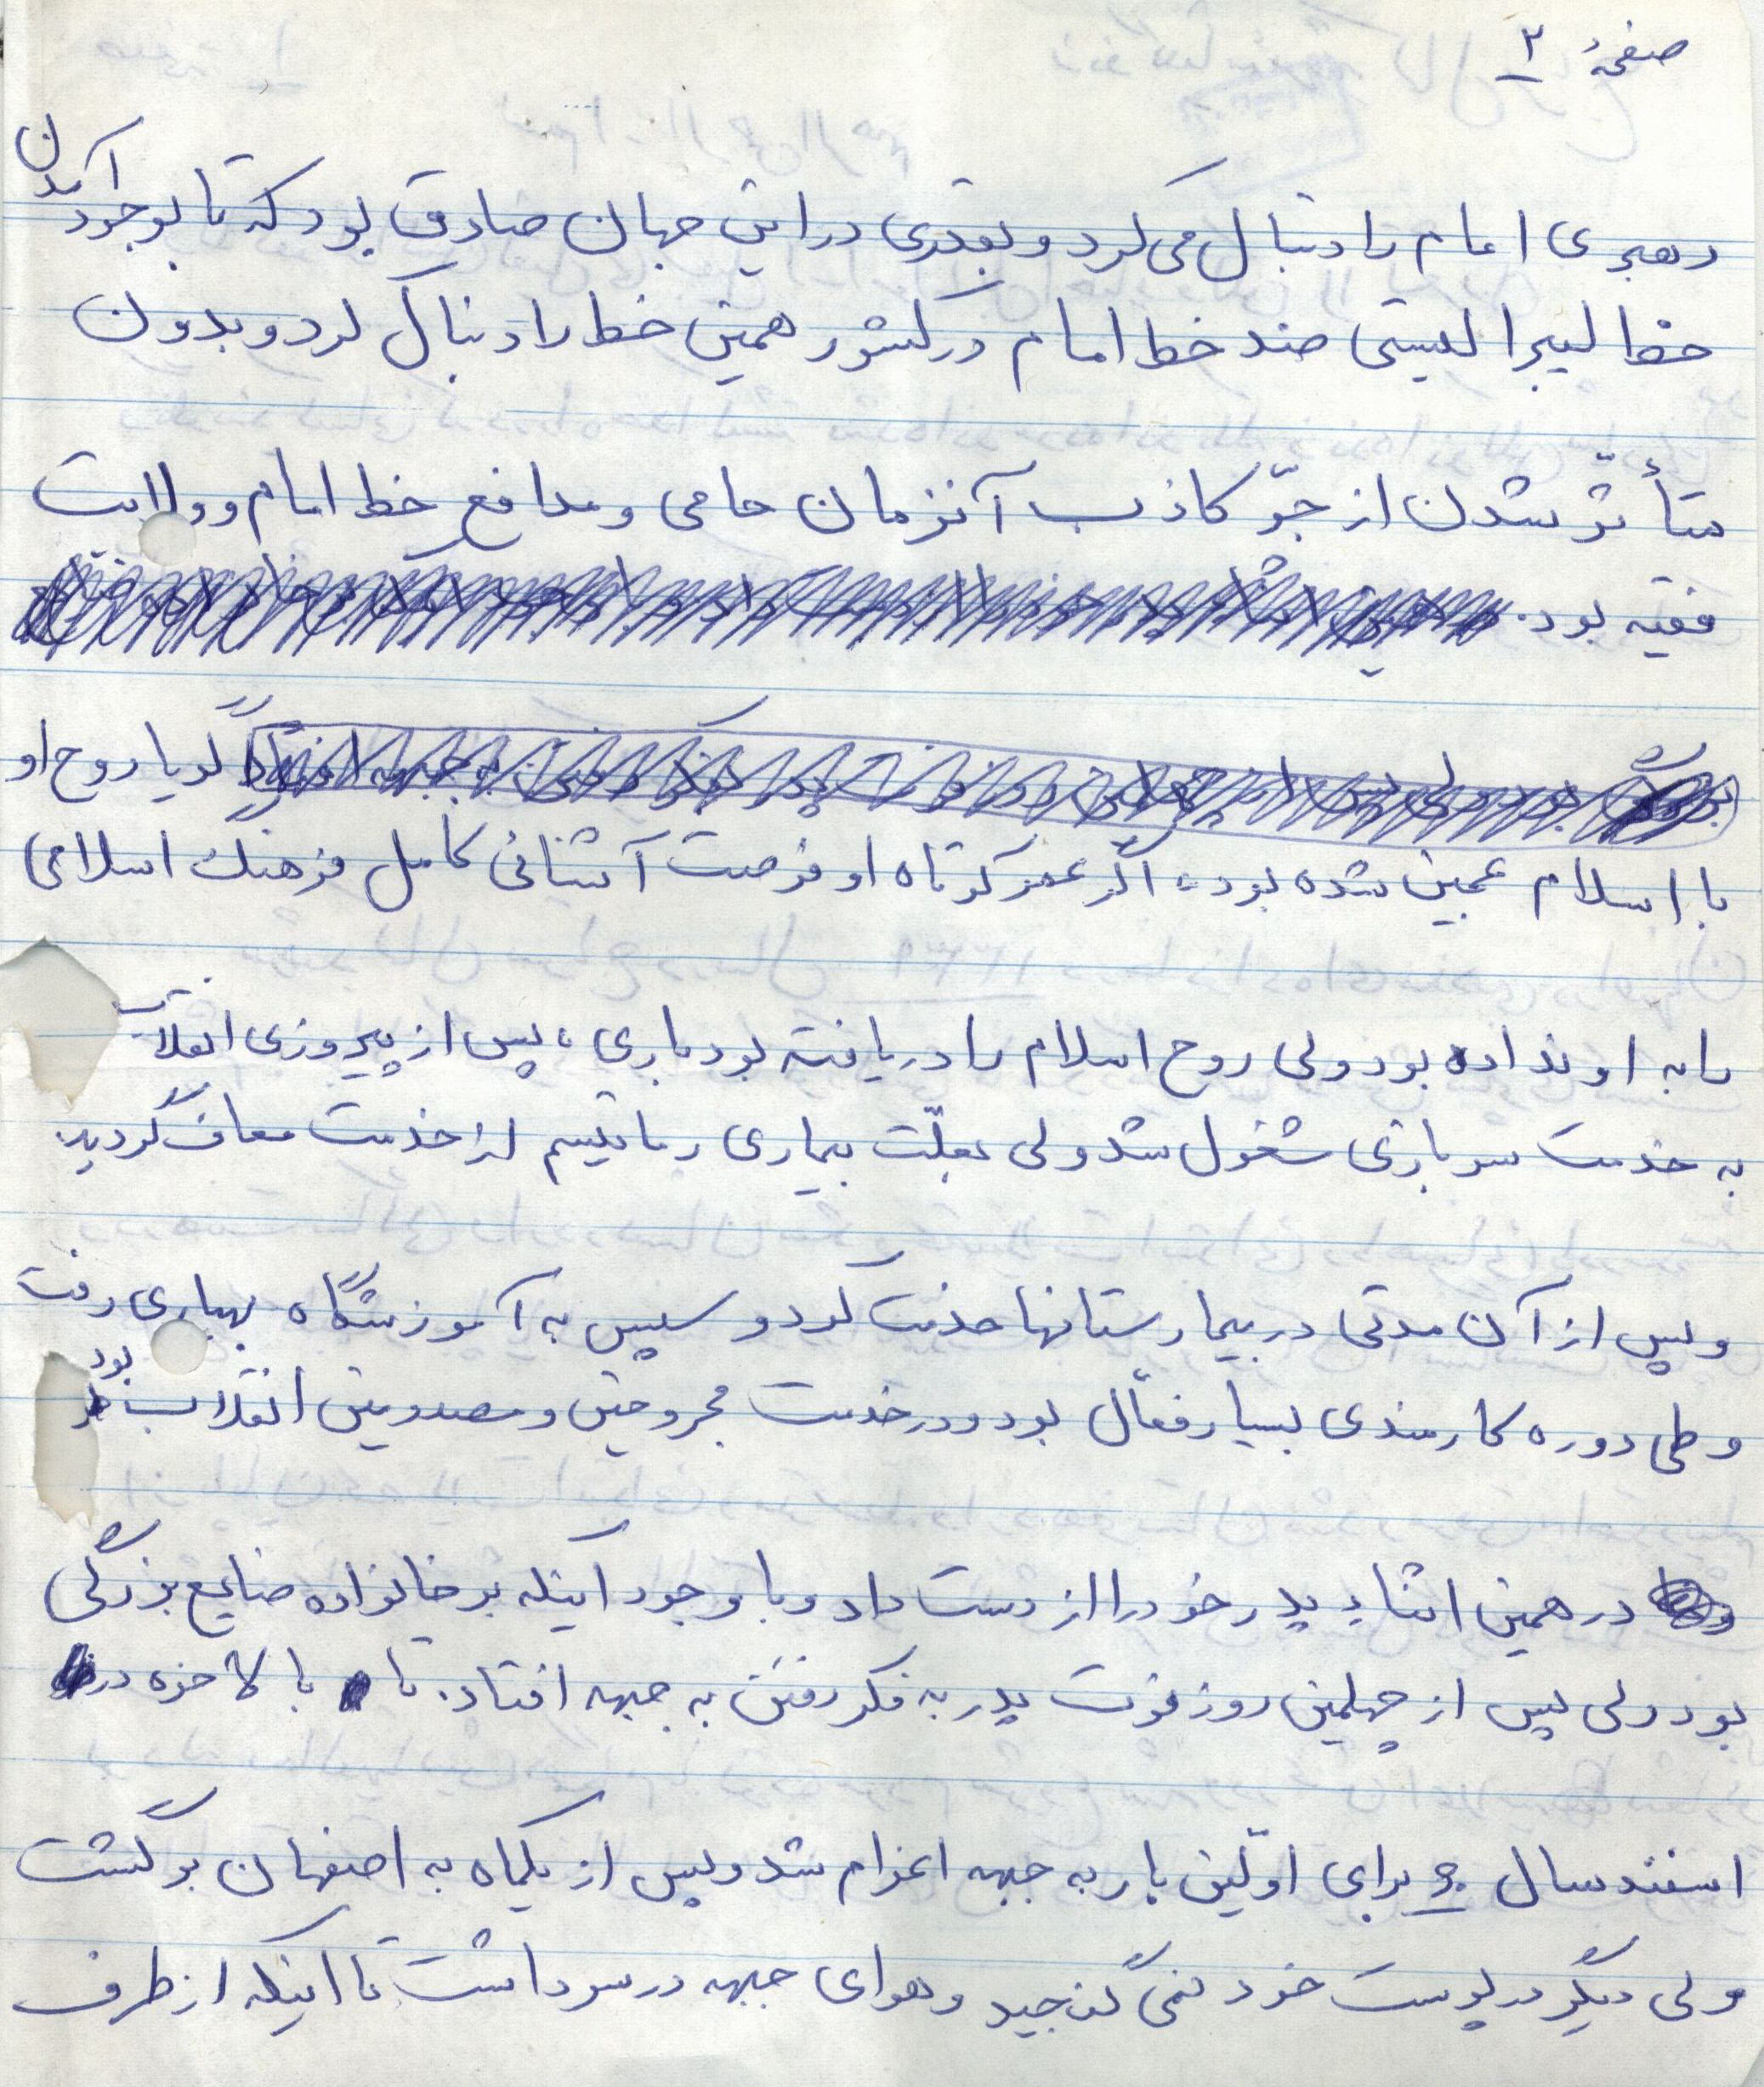 صفحهٔ ۲
رهبری امام را دنبال می‌کرد و بقدری در این جهان صادق بود که تا بوجود آمدن
خط لیبرالیستی ضد خط امام در کشور همین خط را دنبال کرد و بدون
متأثّر شدن از جوّ کاذب آنزمان حامی و مدافع خط امام و ولایت
فقیه بود.
گویا روح او
با اسلام عجین شده بود، اگر عمر کوتاه او فرصت آشنائی کامل فرهنگ اسلامی
را به او نداده بود ولی روح اسلام را دریافته بود باری، پس از پیروزی انقلاب
به خدمت سربازی مشغول شد ولی بعلّت بیماری رماتیسم از خدمت معاف گردید.
و پس از آن مدتی در بیمارستانها خدمت کرد و سپس به آموزشگاه بهیاری رفت
و طی دوره کارمندی بسیار فعّال بود و در خدمت مجروحین و مصدومین انقلاب بود
در همین اثناء پدر خود را از دست داد و با وجود اینکه بر خانواده ضایع بزرگی
بود ولی پس از چهلمین روز فوت پدر به فکر رفتن به جبهه افتاد. تا بالاخره در
اسفند سال برای اوّلین بار به جبهه اعزام شد و پس از یکماه به اصفهان برگشت
ولی دیگر در پوست خود نمی گنجید و هوای جبهه در سر داشت تا اینکه از طرف